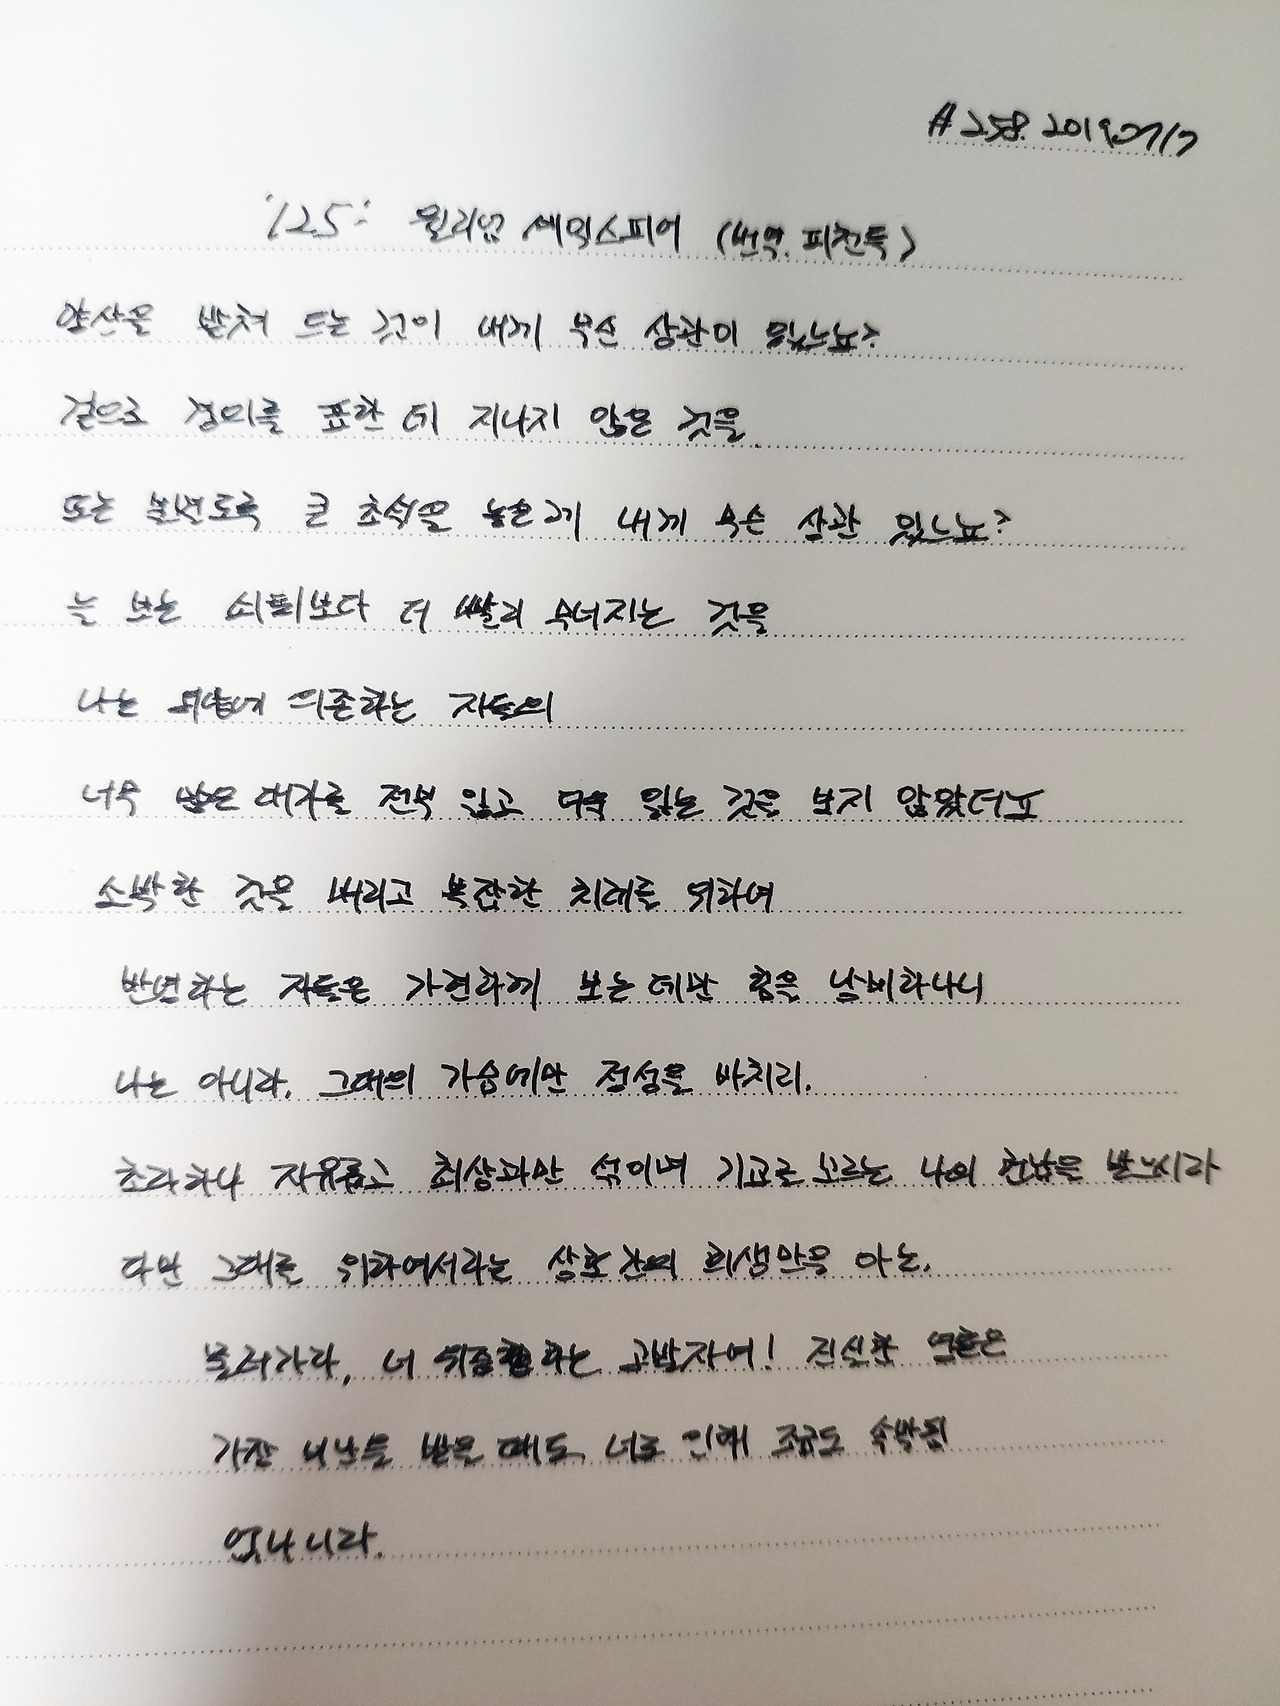 #258. 20190717
'125' 윌리엄 셰익스피어 (번역. 피천득)
양산을 받쳐 드는 것이 내게 무슨 상관이 있느뇨?
겉으로 경의를 표한 데 지나지 않은 것을.
또는 불변토록 큰 초석을 놓은 게 내게 무슨 상관 있느뇨?
는 보는 쇠퇴보다 더 빨리 무너지는 것을
나는 외양에 의존하는 자들의
너무 많은 대가를 전부 잃고 다 잃는 것을 보지 않았더뇨
소박한 것을 버리고 복잡한 치레를 위하여
번영하는 자들은 가련하게 보는 데만 힘을 낭비하나니
나는 아니라, 그대의 가슴에만 정성을 바치리.
초라하나 자유롭고 최상과만 섞이며 기교를 모르는 나의 헌납을 받으시라
다만 그대를 위하여서라는 상호 간의 희생만을 아는.
물러가라, 너 위증하는 고발자여! 진실한 영혼은
가장 비난을 받을 때도 너로 인해 조금도 속박됨
없나니라.